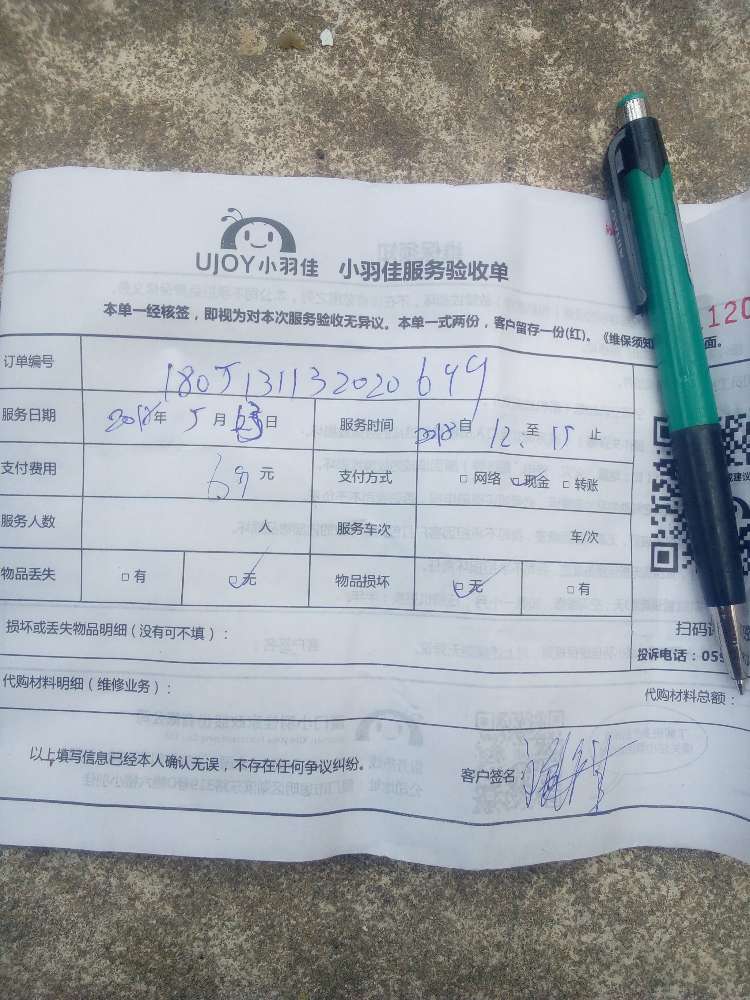 UJOY小羽佳 小羽佳服务验收单
本单一经核签，即视为对本次服务验收无异议。本单一式两份，客户留存一份(红)。《维保须知 面。
120
订单编号 1805131132020649
服务日期 2018年 5月 13日 服务时间 2018自 12: 至 15 止
支付费用 69 元 支付方式 □ 网络 □ 现金 □ 转账
服务人数 人 服务车次 车/次
物品丢失 □ 有 □ 无 物品损坏 □ 无 □ 有
损坏或丢失物品明细 (没有可不填)：
扫码
投诉电话：059
代购材料明细 (维修业务)：
代购材料总额：
以上填写信息已经本人确认无误，不存在任何争议纠纷。
客户签名：